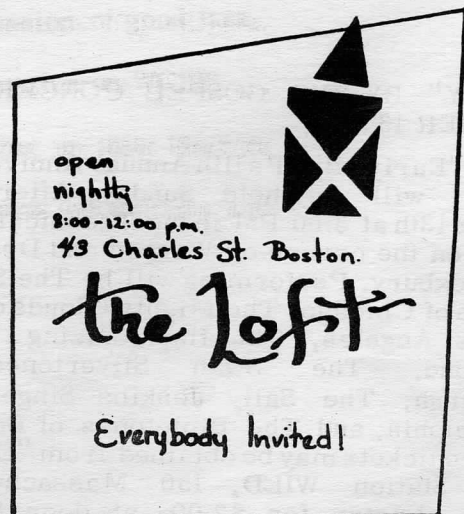 open
nightly
8:00-12:00 p.m.
43 Charles St. Boston.
the Loft
Everybody Invited!